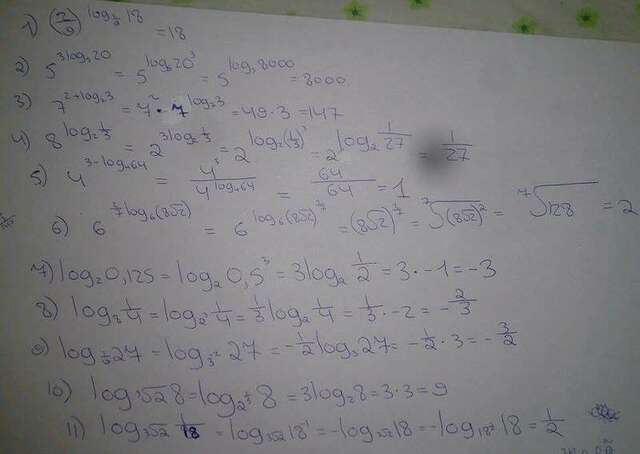 1) (7/9)^log 18 = 18
2) 5^3log₅20 = 5^log₅20³ = 5^log₅8000 = 8000
3) 7^2+log₇3 = 7² · 7^log₇3 = 49·3 = 147
4) 8^log₂1/3 = 2^3log₂1/3 = 2^log₂(1/3)³ = 2^log₂1/27 = 1/27
5) 4^3-log₄64 = 4³/4^log₄64 = 64/64 = 1
6) 6^2/7log₆(8√2) = 6^log₆(8√2)^2/7 = (8√2)^2/7 = ⁷√(8√2)² = ⁷√128 = 2
7) log₂0,125 = log₂0,5³ = 3log₂1/2 = 3·-1 = -3
8) log 1/4 = log 1/4 = 1/3log₂1/4 = 1/3·-2 = -2/3
9) log 27 = log₃-2 27 = -1/2log₃27 = -1/2·3 = -3/2
10) log³√2 8 = log₂1/3 8 = 3log₂8 = 3·3 = 9
11) log₃√2 1/18 = log₃√2 18 = -log 18 = -log 18 = 1/2